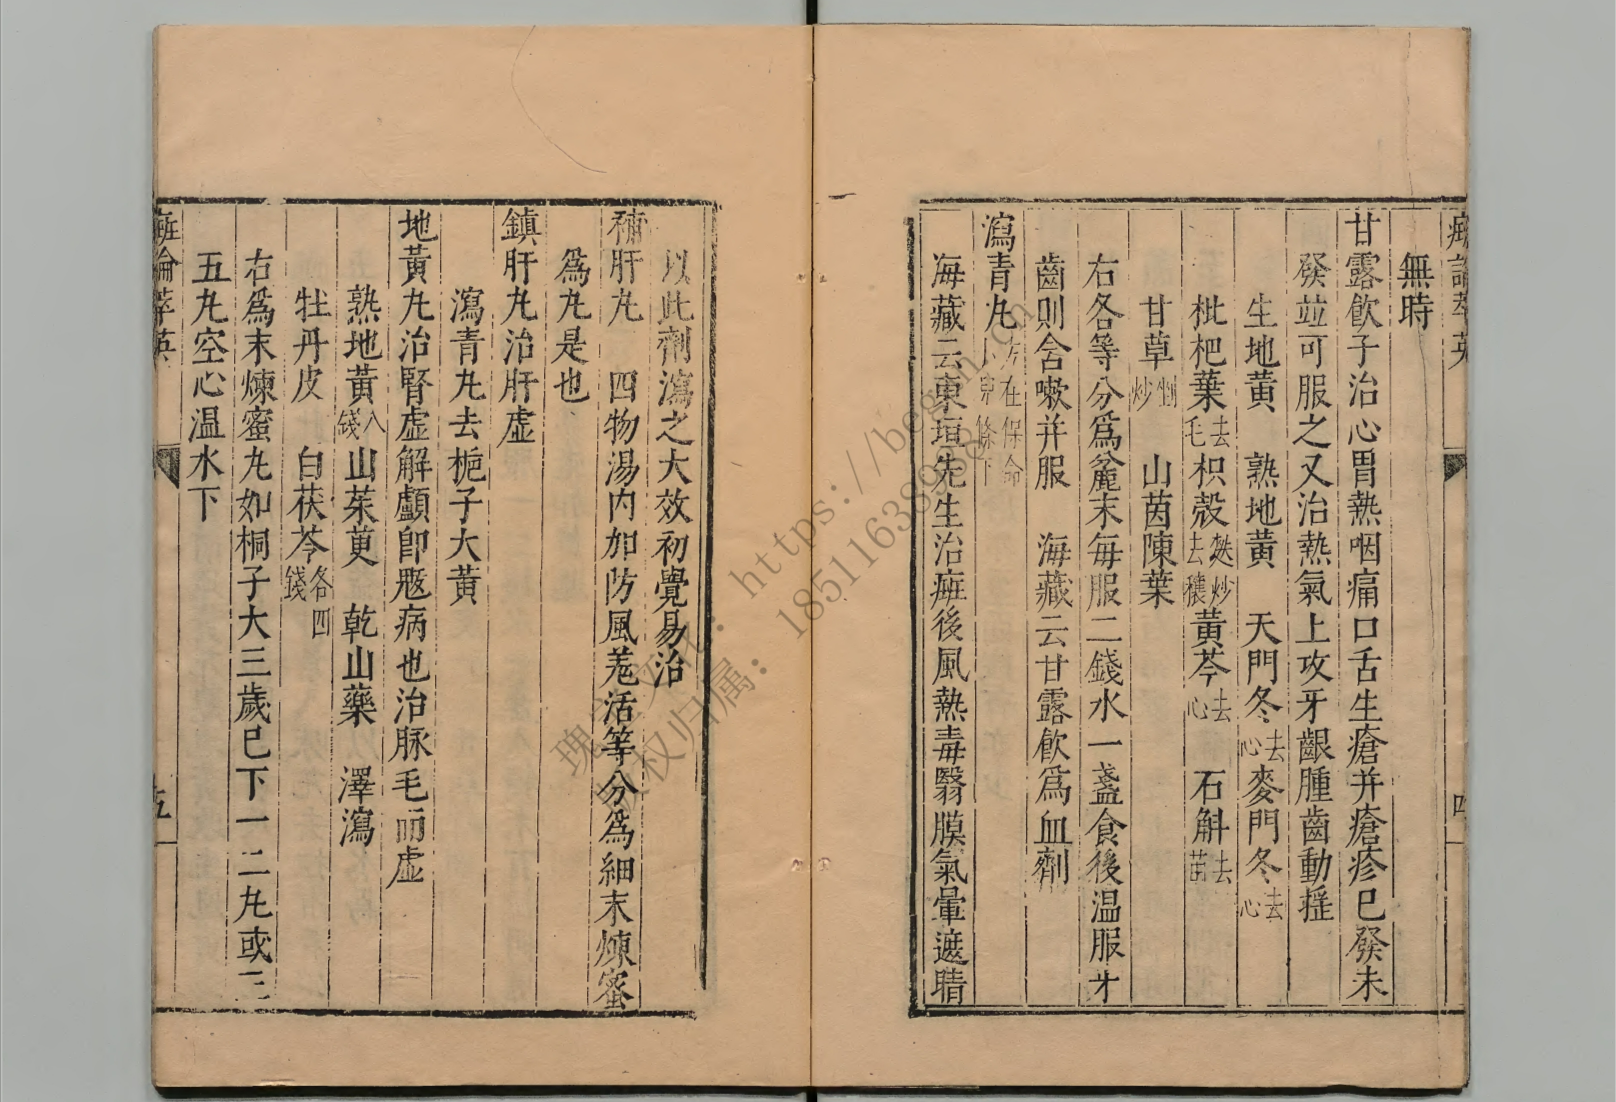 無時
甘露飲子治心胃熱咽痛口舌生瘡并瘡疹已發未
發並可服之又治熱氣上攻牙齦腫齒動搖
生地黄 熟地黄 天門冬去心 麥門冬去心
枇杷葉去毛 枳殻麩炒去穰 黄芩去心 石斛去苗
甘草剉炒 山茵陳葉
右各等分爲麄末毎服二錢水一盞食後温服牙
齒則含嗽并服 海藏云甘露飲爲血劑
瀉青丸方在保命條下
海藏云東垣先生治癍後風熱毒翳膜氣暈遮睛
以此劑瀉之大效初覺易治
補肝丸 四物湯内加防風羌活等分爲細末煉蜜
爲丸是也
鎮肝丸治肝虚
瀉青丸去梔子大黄
地黄丸治腎虚解顱即魘病也治脉毛而虚
熟地黄八錢 山茱萸 乾山藥 澤瀉
牡丹皮 白茯苓各四錢
右爲末煉蜜丸如桐子大三歲已下一二丸或三
五丸空心温水下
癍論萃英
五
四
瑰宝文化：https://bcgm.cn
版权归属：18511638938